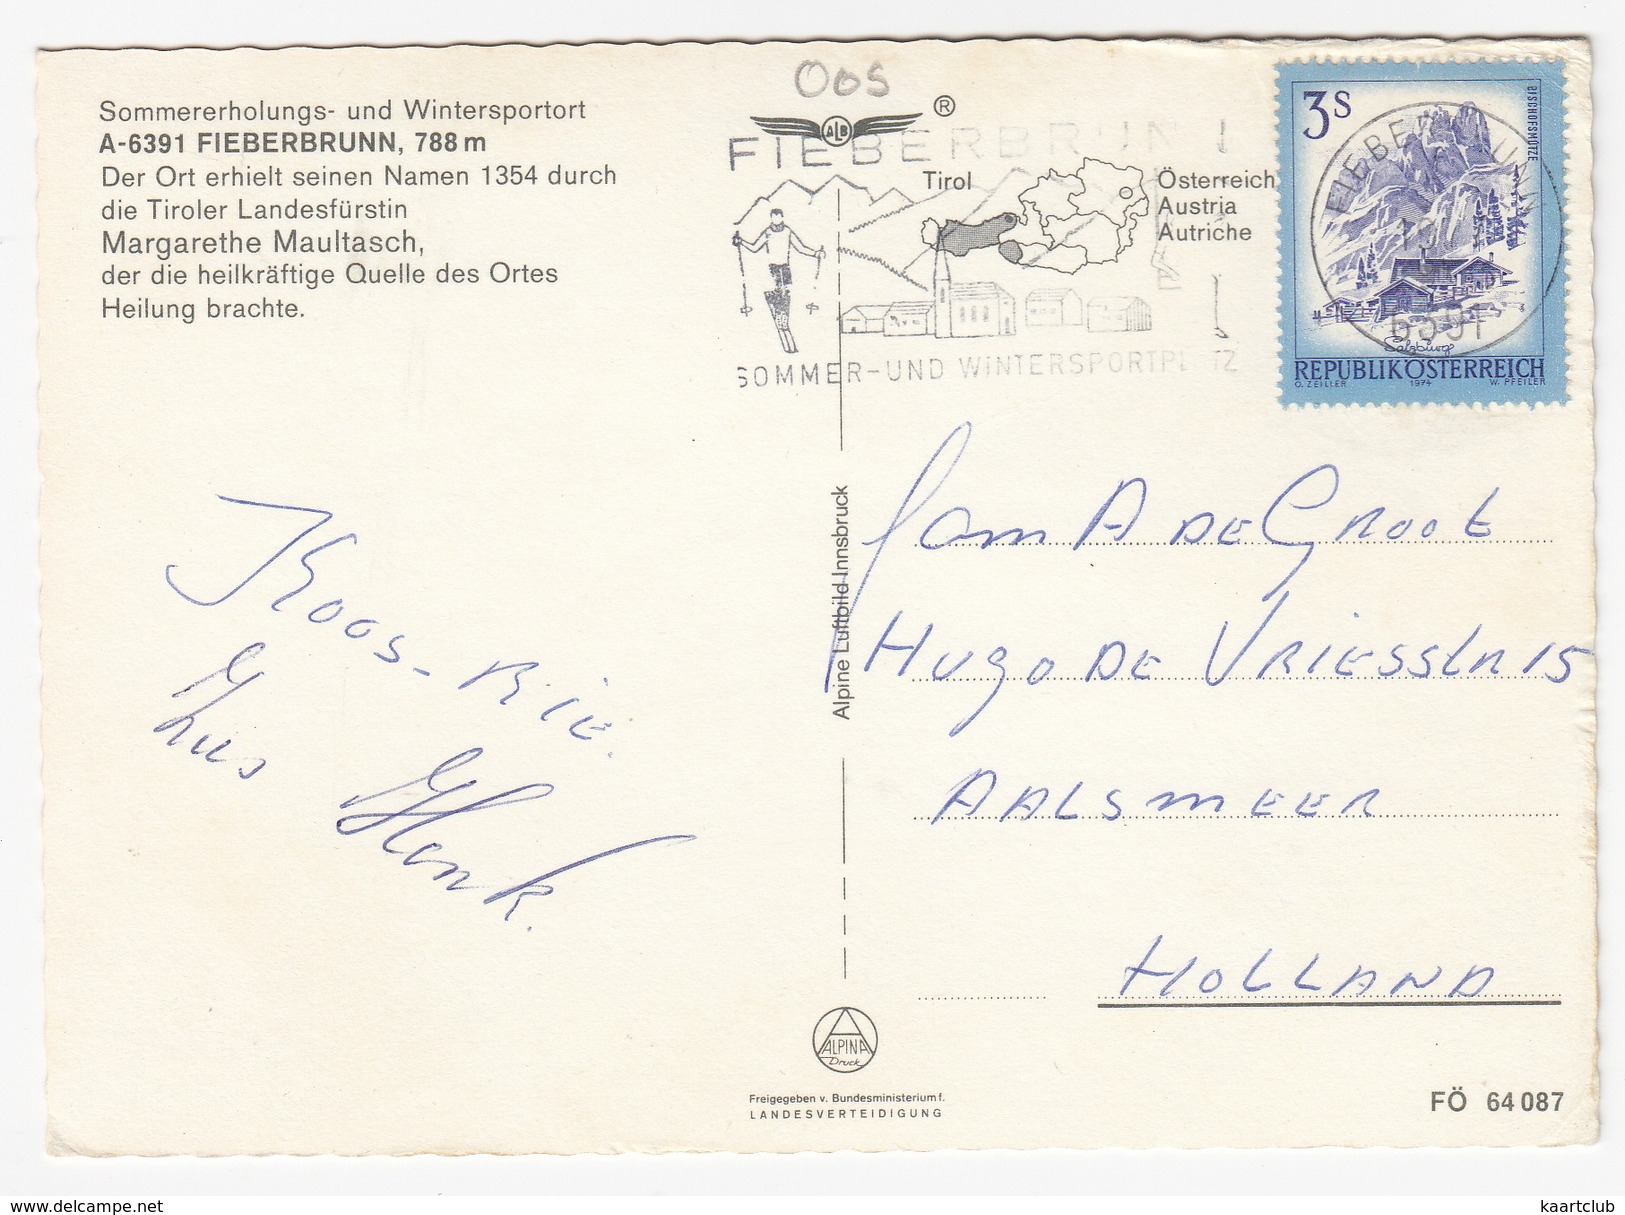 Sommererholungs- und Wintersportort
A-6391 FIEBERBRUNN, 788 m
Der Ort erhielt seinen Namen 1354 durch
die Tiroler Landesfürstin
Margarethe Maultasch,
der die heilkräftige Quelle des Ortes
Heilung brachte.
OOS
ALB ®
FIEBERBRUNN
Tirol
Österreich
Austria
Autriche
SOMMER-UND WINTERSPORTPL TZ
3 S
BISCHOFSMÜTZE
FIEBERBRUNN
6391
Salzburg
REPUBLIK ÖSTERREICH
O. ZEILLER 1974 W. PFEILER
Koos-Rie.
Henk.
Alpine Luftbild Innsbruck
Fam A DE GROOT
HUGO DE VRIESSTR 15
AALSMEER
HOLLAND
ALPINA
Druck
Freigegeben v. Bundesministerium f.
LANDESVERTEIDIGUNG
FÖ 64 087
kaartclub